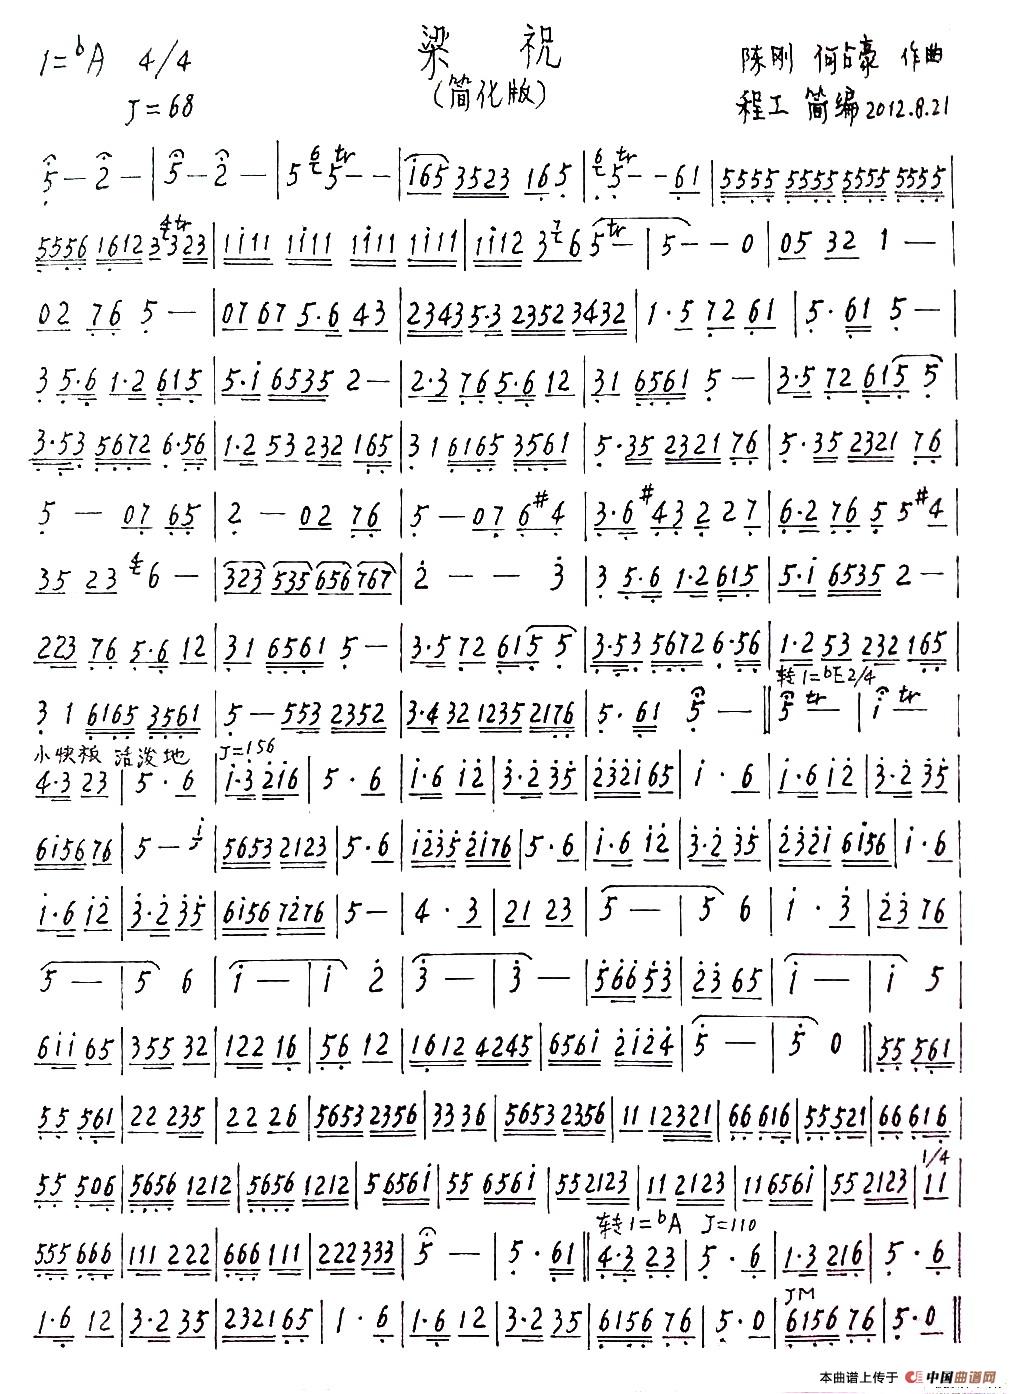 梁 祝
(简化版)
1=bA 4/4
J=68
陈刚 何占豪 作曲
程工 简编 2012.8.21
5 - 2 - | 5 - 2 - | 5 6 tr 5 - - | i65 3523 16 5 | 6 tr 5 - - 61 | 5555 5555 5555 5555 |
02 76 5 - | 07 67 5·6 43 | 2343 5·3 2352 3432 | 1·5 72 61 | 5·61 5 - |
3 5·6 1·2 615 | 5·i 6535 2 - | 2·3 76 5·6 12 | 31 6561 5 - | 3·5 72 615 5 |
3·53 5672 6·56 | 1·2 53 232 165 | 3 1 6165 3561 | 5·35 2321 76 | 5·35 2321 76 |
5 - 07 65 | 2 - 02 76 | 5 - 07 6#4 | 3·6 #43 2 2 7 | 6·2 76 5 5#4 |
35 23 4 6 - | 323 535 656 767 | 2 - - 3 | 3 5·6 1·2 615 | 5·i 6535 2 - |
223 76 5·6 12 | 31 6561 5 - | 3·5 72 615 5 | 3·53 5672 6·56 | 1·2 53 232 165 |
转1=bE 2/4
3 1 6165 3561 | 5 - 553 2352 | 3·4 32 1235 2176 | 5·61 5 - || 5 tr - | i tr - |
小快板 活泼地 J=156
4·3 23 | 5·6 | i·3 2i6 | 5·6 | i·6 i2 | 3·2 35 | 232i 65 | i·6 | i·6 i2 | 3·2 35 |
6i56 76 | 5 - i | 5653 2123 | 5·6 | i235 2i76 | 5·6 | i·6 i2 | 3·2 35 | 232i 6i56 | i·6 |
i·6 i2 | 3·2 35 | 6i56 7276 | 5 - | 4·3 | 21 23 | 5 - | 5 6 | i·3 | 23 76 |
5 - | 5 6 | i - | i 2 | 3 - | 3 - | 566 53 | 23 65 | i - | i 5 |
6ii 65 | 355 32 | 122 16 | 56 12 | 1612 4245 | 656i 2i24 | 5 - | 5 0 || 55 561 |
55 561 | 22 235 | 22 26 | 5653 2356 | 33 36 | 5653 2356 | 11 12321 | 66 616 | 55 521 | 66 616 |
1/4
55 506 | 5656 1212 | 5656 1212 | 5 656i | 55 656i | 55 2123 | 11 2123 | 11 656i | 55 2123 | 11 |
转1=bA J=110
555 666 | 111 222 | 666 111 | 222 333 | 5 - | 5·61 || 4·3 23 | 5·6 | 1·3 216 | 5·6 |
1·6 12 | 3·2 35 | 2321 65 | 1·6 | 1·6 12 | 3·2 35 | 6156 76 | 5·0 | 6156 76 | 5·0 ||
本曲谱上传于 中国曲谱网